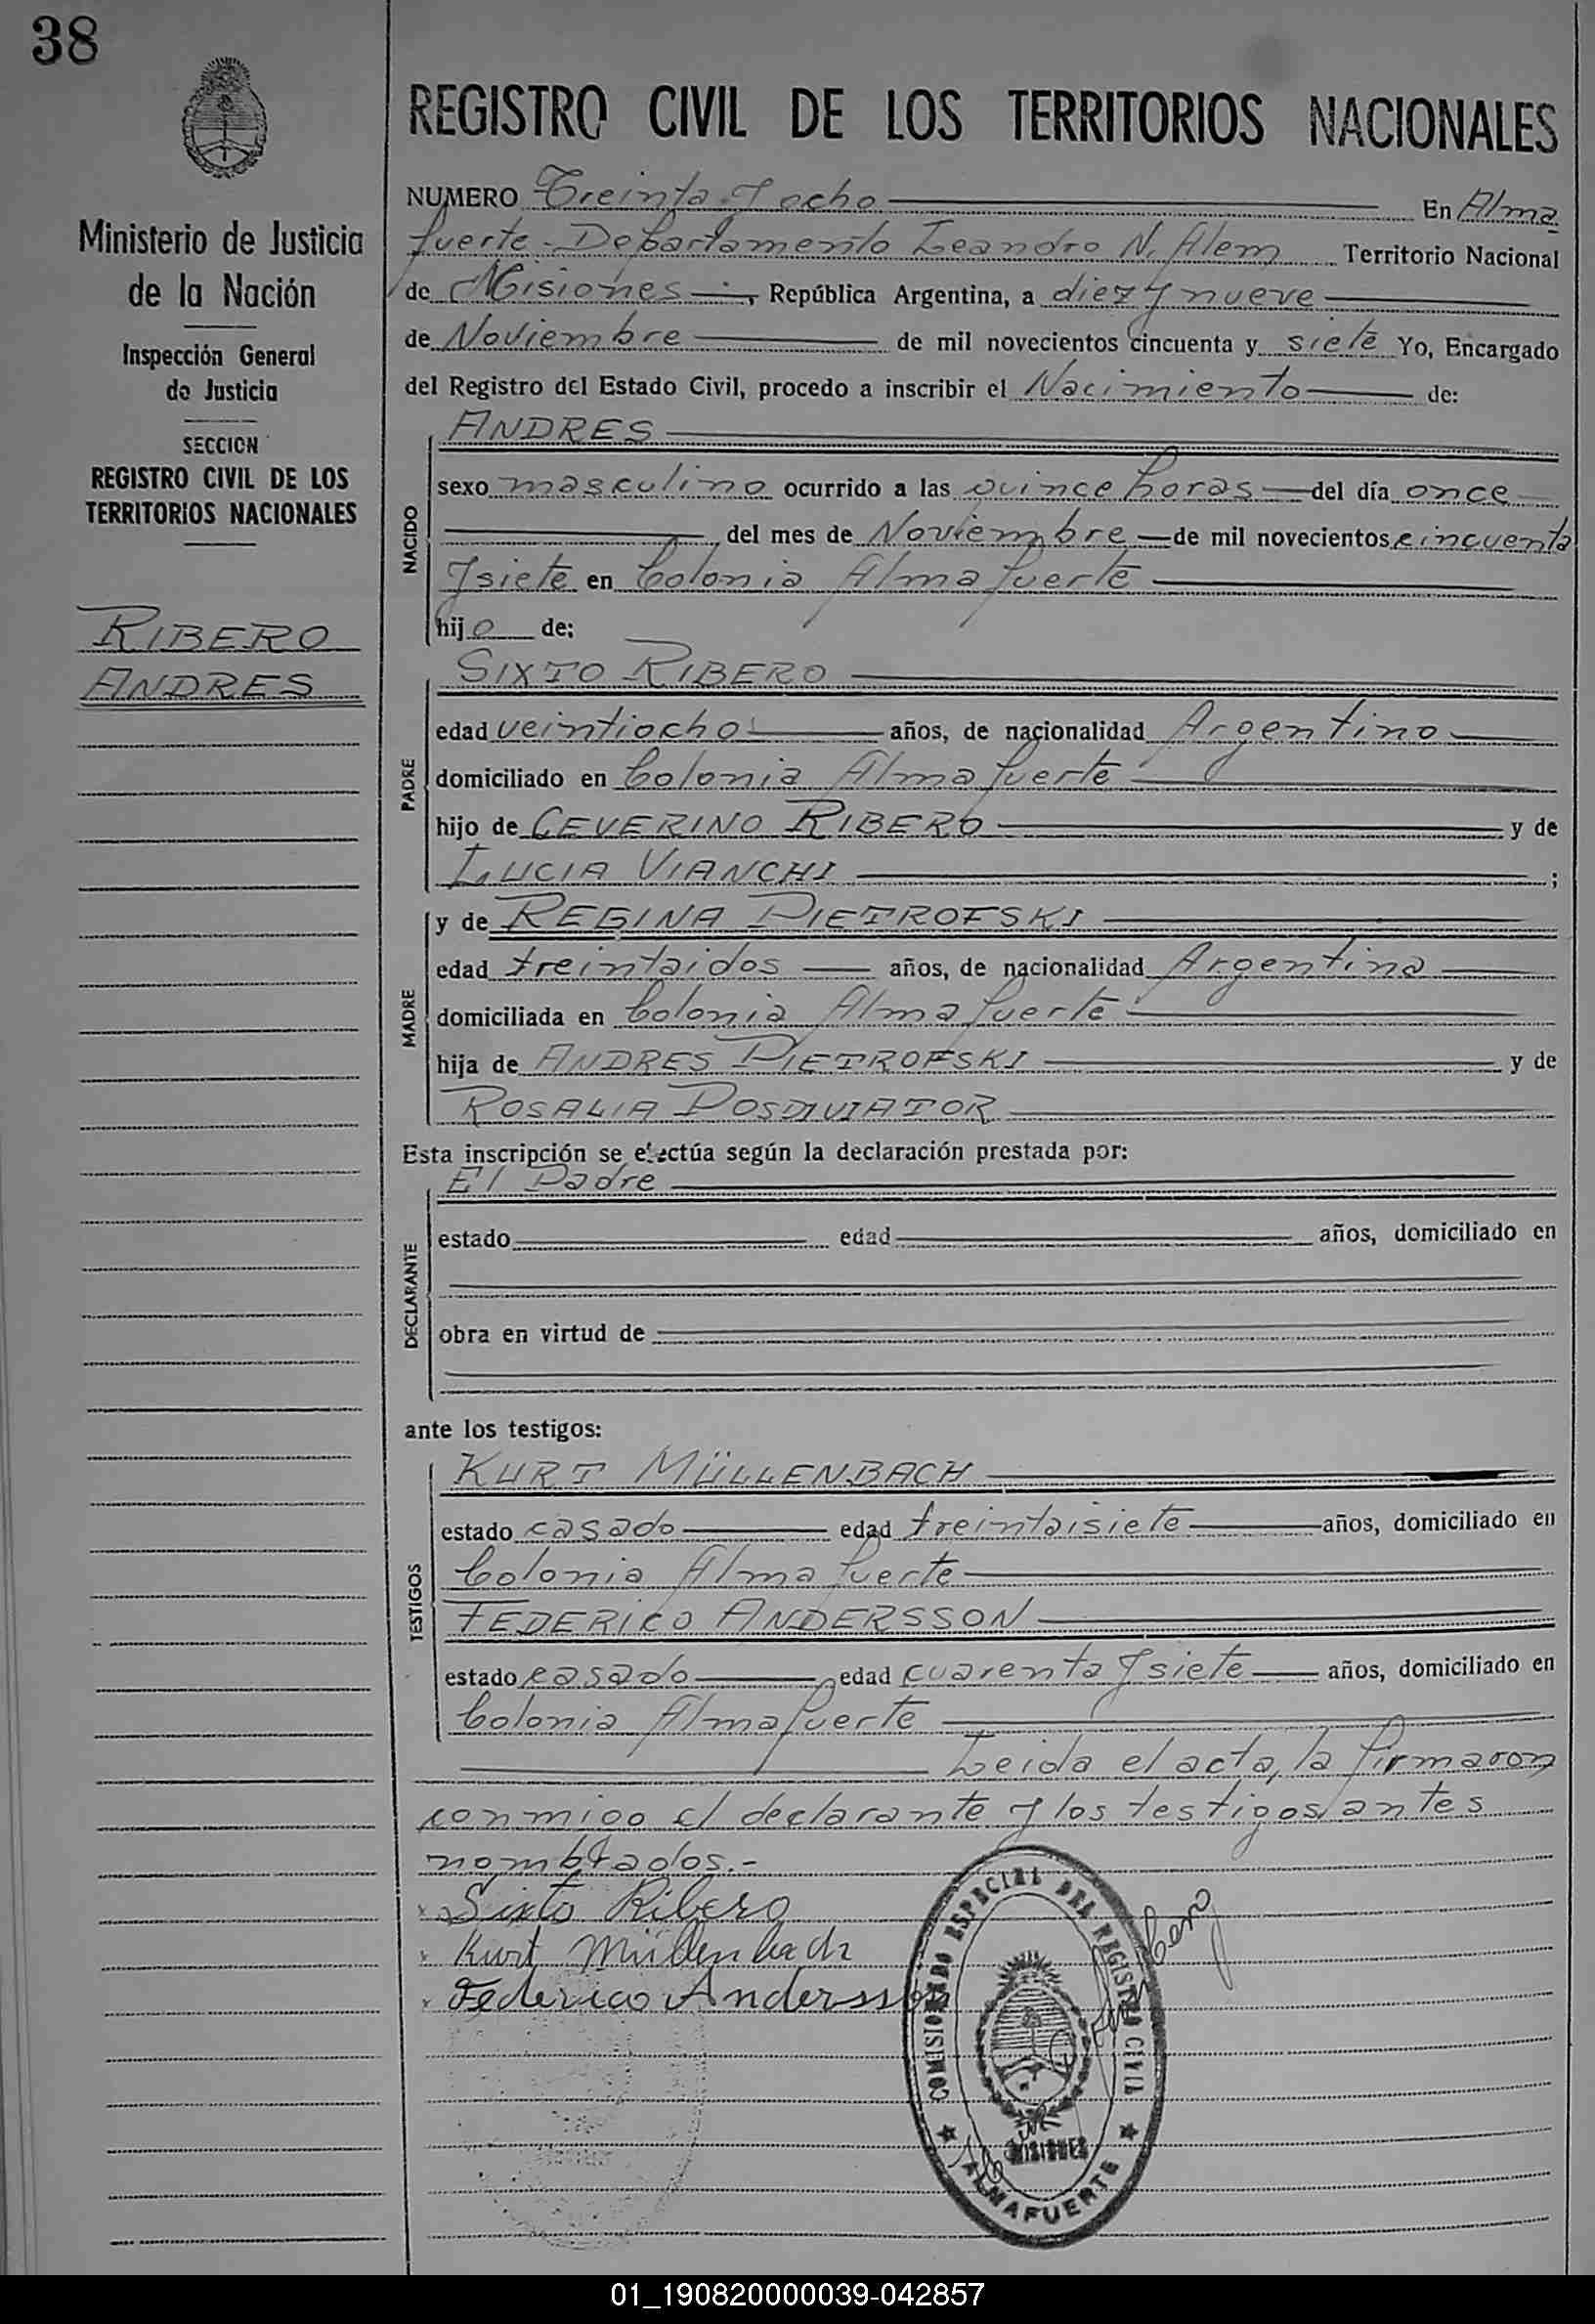 38
REGISTRO CIVIL DE LOS TERRITORIOS NACIONALES
Ministerio de Justicia
de la Nación
Inspección General
de Justicia
SECCION
REGISTRO CIVIL DE LOS
TERRITORIOS NACIONALES
RIBERO
ANDRES
NUMERO Treinta y ocho En Alma
fuerte - Departamento Leandro N. Alem Territorio Nacional
de Misiones, República Argentina, a diez y nueve
de Noviembre de mil novecientos cincuenta y siete Yo, Encargado
del Registro del Estado Civil, procedo a inscribir el Nacimiento de:
NACIDO
ANDRES
sexo masculino ocurrido a las quince horas del día once
del mes de Noviembre de mil novecientos cincuenta
y siete en Colonia Almafuerte
hijo de:
PADRE
SIXTO RIBERO
edad veintiocho años, de nacionalidad Argentino
domiciliado en Colonia Almafuerte
hijo de CEVERINO RIBERO y de
LUCIA VIANCHI ;
MADRE
y de REGINA PIETROFSKI
edad treintaidos años, de nacionalidad Argentina
domiciliada en Colonia Almafuerte
hija de ANDRES PIETROFSKI y de
ROSALIA
Esta inscripción se efectúa según la declaración prestada por:
DECLARANTE
El Padre
estado edad años, domiciliado en
obra en virtud de
ante los testigos:
TESTIGOS
KURT MÜLLENBACH
estado casado edad treintaisiete años, domiciliado en
Colonia Almafuerte
FEDERICO ANDERSSON
estado casado edad cuarenta y siete años, domiciliado en
Colonia Almafuerte
Leida el acta, la firmaron
conmigo el declarante y los testigos antes
nombrados.-
Sixto Ribero
Kurt Müllenbach
Federico Andersson
COMISIONADO ESPECIAL DEL REGISTRO CIVIL
MISIONES
ALMAFUERTE
01_190820000039-042857